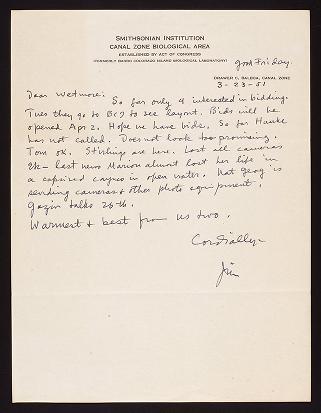 SMITHSONIAN INSTITUTION
CANAL ZONE BIOLOGICAL AREA
ESTABLISHED BY ACT OF CONGRESS
(FORMERLY BARRO COLORADO ISLAND BIOLOGICAL LABORATORY)
Good Friday.
DRAWER C, BALBOA, CANAL ZONE
3-23-51
Dear Wetmore: So far only 4 interested in bidding.
Tues they go to BCI to see layout. Bids will be
opened Apr 2. Hope we have bids. So far
has not called. Does not look too promising.
Tom OK. Stirlings are here. Lost all cameras
etc - last news Marion almost lost her life in
a capsized cayuco in open water. Nat Geog is
sending cameras & other photo equipment.
Gazin talks 26th.
Warmest & best from us two.
Cordially
Jim